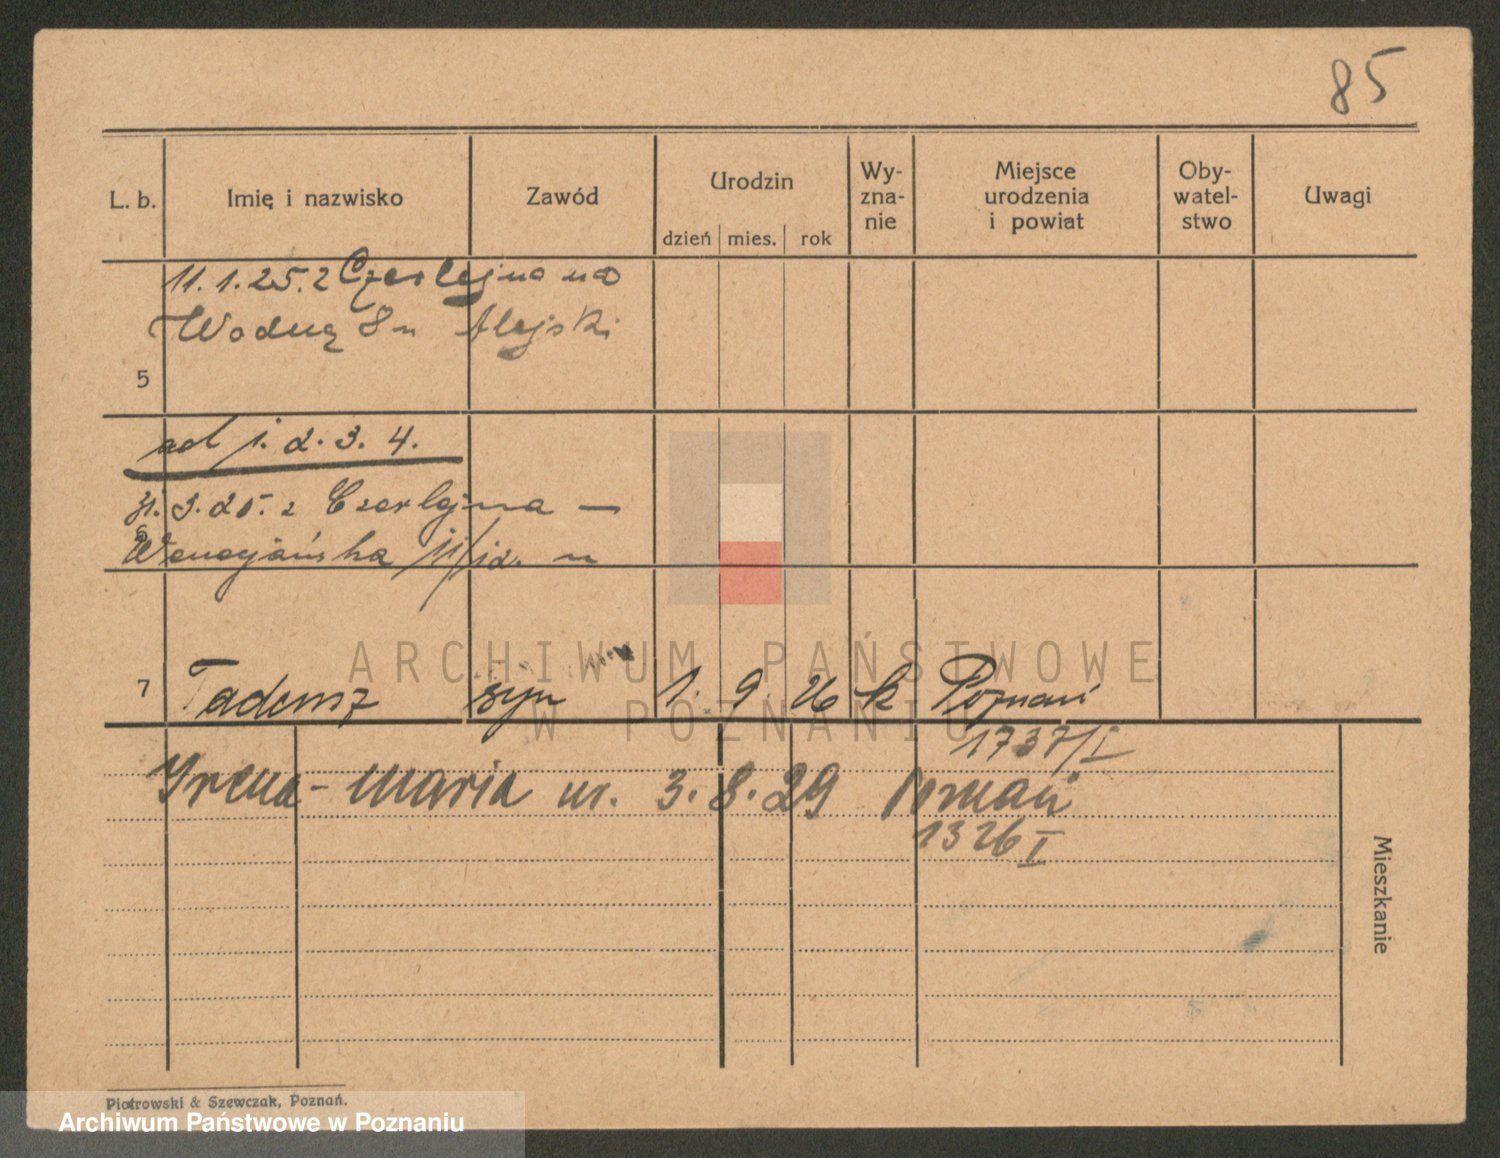 85
L. b. Imię i nazwisko Zawód Urodzin Wy- zna- nie Miejsce urodzenia i powiat Oby- watel- stwo Uwagi
dzień mies. rok
11.1.25. z Czerlejna na
Wodną 8 u
5
ad 1. 2. 3. 4.
3.25. z Czerlejna —
6
Wenecjańska 11/12.
7 Tadeusz syn 1. 9. 26 k Poznań
1737/I
Irena-Maria ur. 3.8.29 Poznań
1326 I
Mieszkanie
Piotrowski & Szewczak, Poznań.
ARCHIWUM PAŃSTWOWE
W POZNANIU
Archiwum Państwowe w Poznaniu